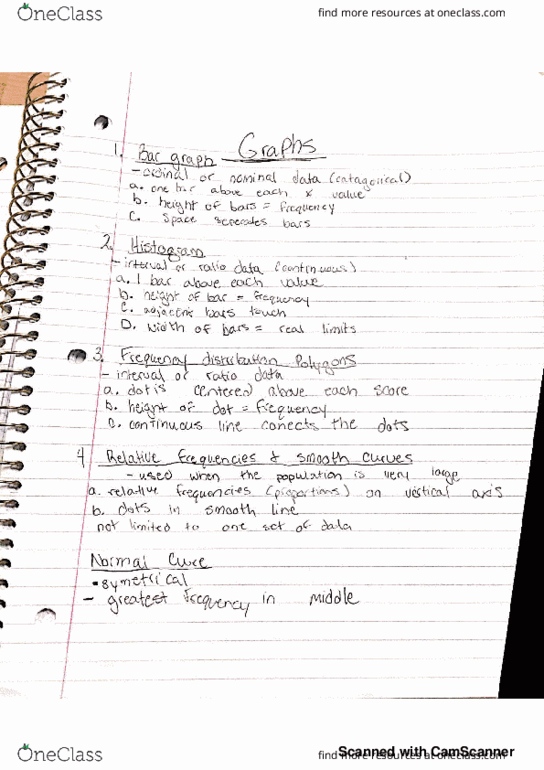 OneClass
find more resources at oneclass.com
Graphs
1. Bar graph
- ordinal or nominal data (catagorical)
a. one bar above each x value
b. height of bars = frequency
C. Space seperates bars
2. Histogram
- interval or ratio data (continuous)
a. 1 bar above each value
b. height of bar = frequency
C. adjacent bars touch
D. width of bars = real limits
3. Frequency distribution Polygons
- interval or ratio data
a. dot is centered above each score
b. height of dot = frequency
C. continuous line conects the dots
4 Relative frequencies & smooth curves
- used when the population is very large
a. relative frequencies (proportions) on vertical axis
b. dots in smooth line
not limited to one set of data
Normal Curve
- symetrical
- greatest frequency in middle
OneClass
find more resources at oneclass.com
Scanned with CamScanner